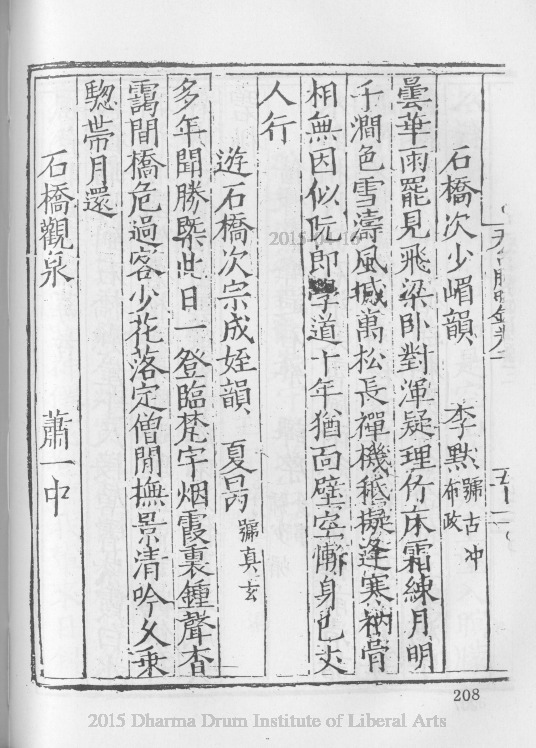 石橋次少嵋韻 李默號古冲布政
曇華雨罷見飛梁卧對渾疑理竹床霜練月明
千澗色雪濤風撼萬松長禪機秪擬逢寒衲骨
相無因似阮郎學道十年猶面壁空慚身已丈
人行
遊石橋次宗成姪韻 夏昺號真玄
多年聞勝槩此日一登臨梵宇烟霞裏鍾聲杳
靄間橋危過客少花落定僧閒撫景清吟久乗
驄帶月還
石橋觀泉 蕭一中
208
2015-04-16
2015 Dharma Drum Institute of Liberal Arts